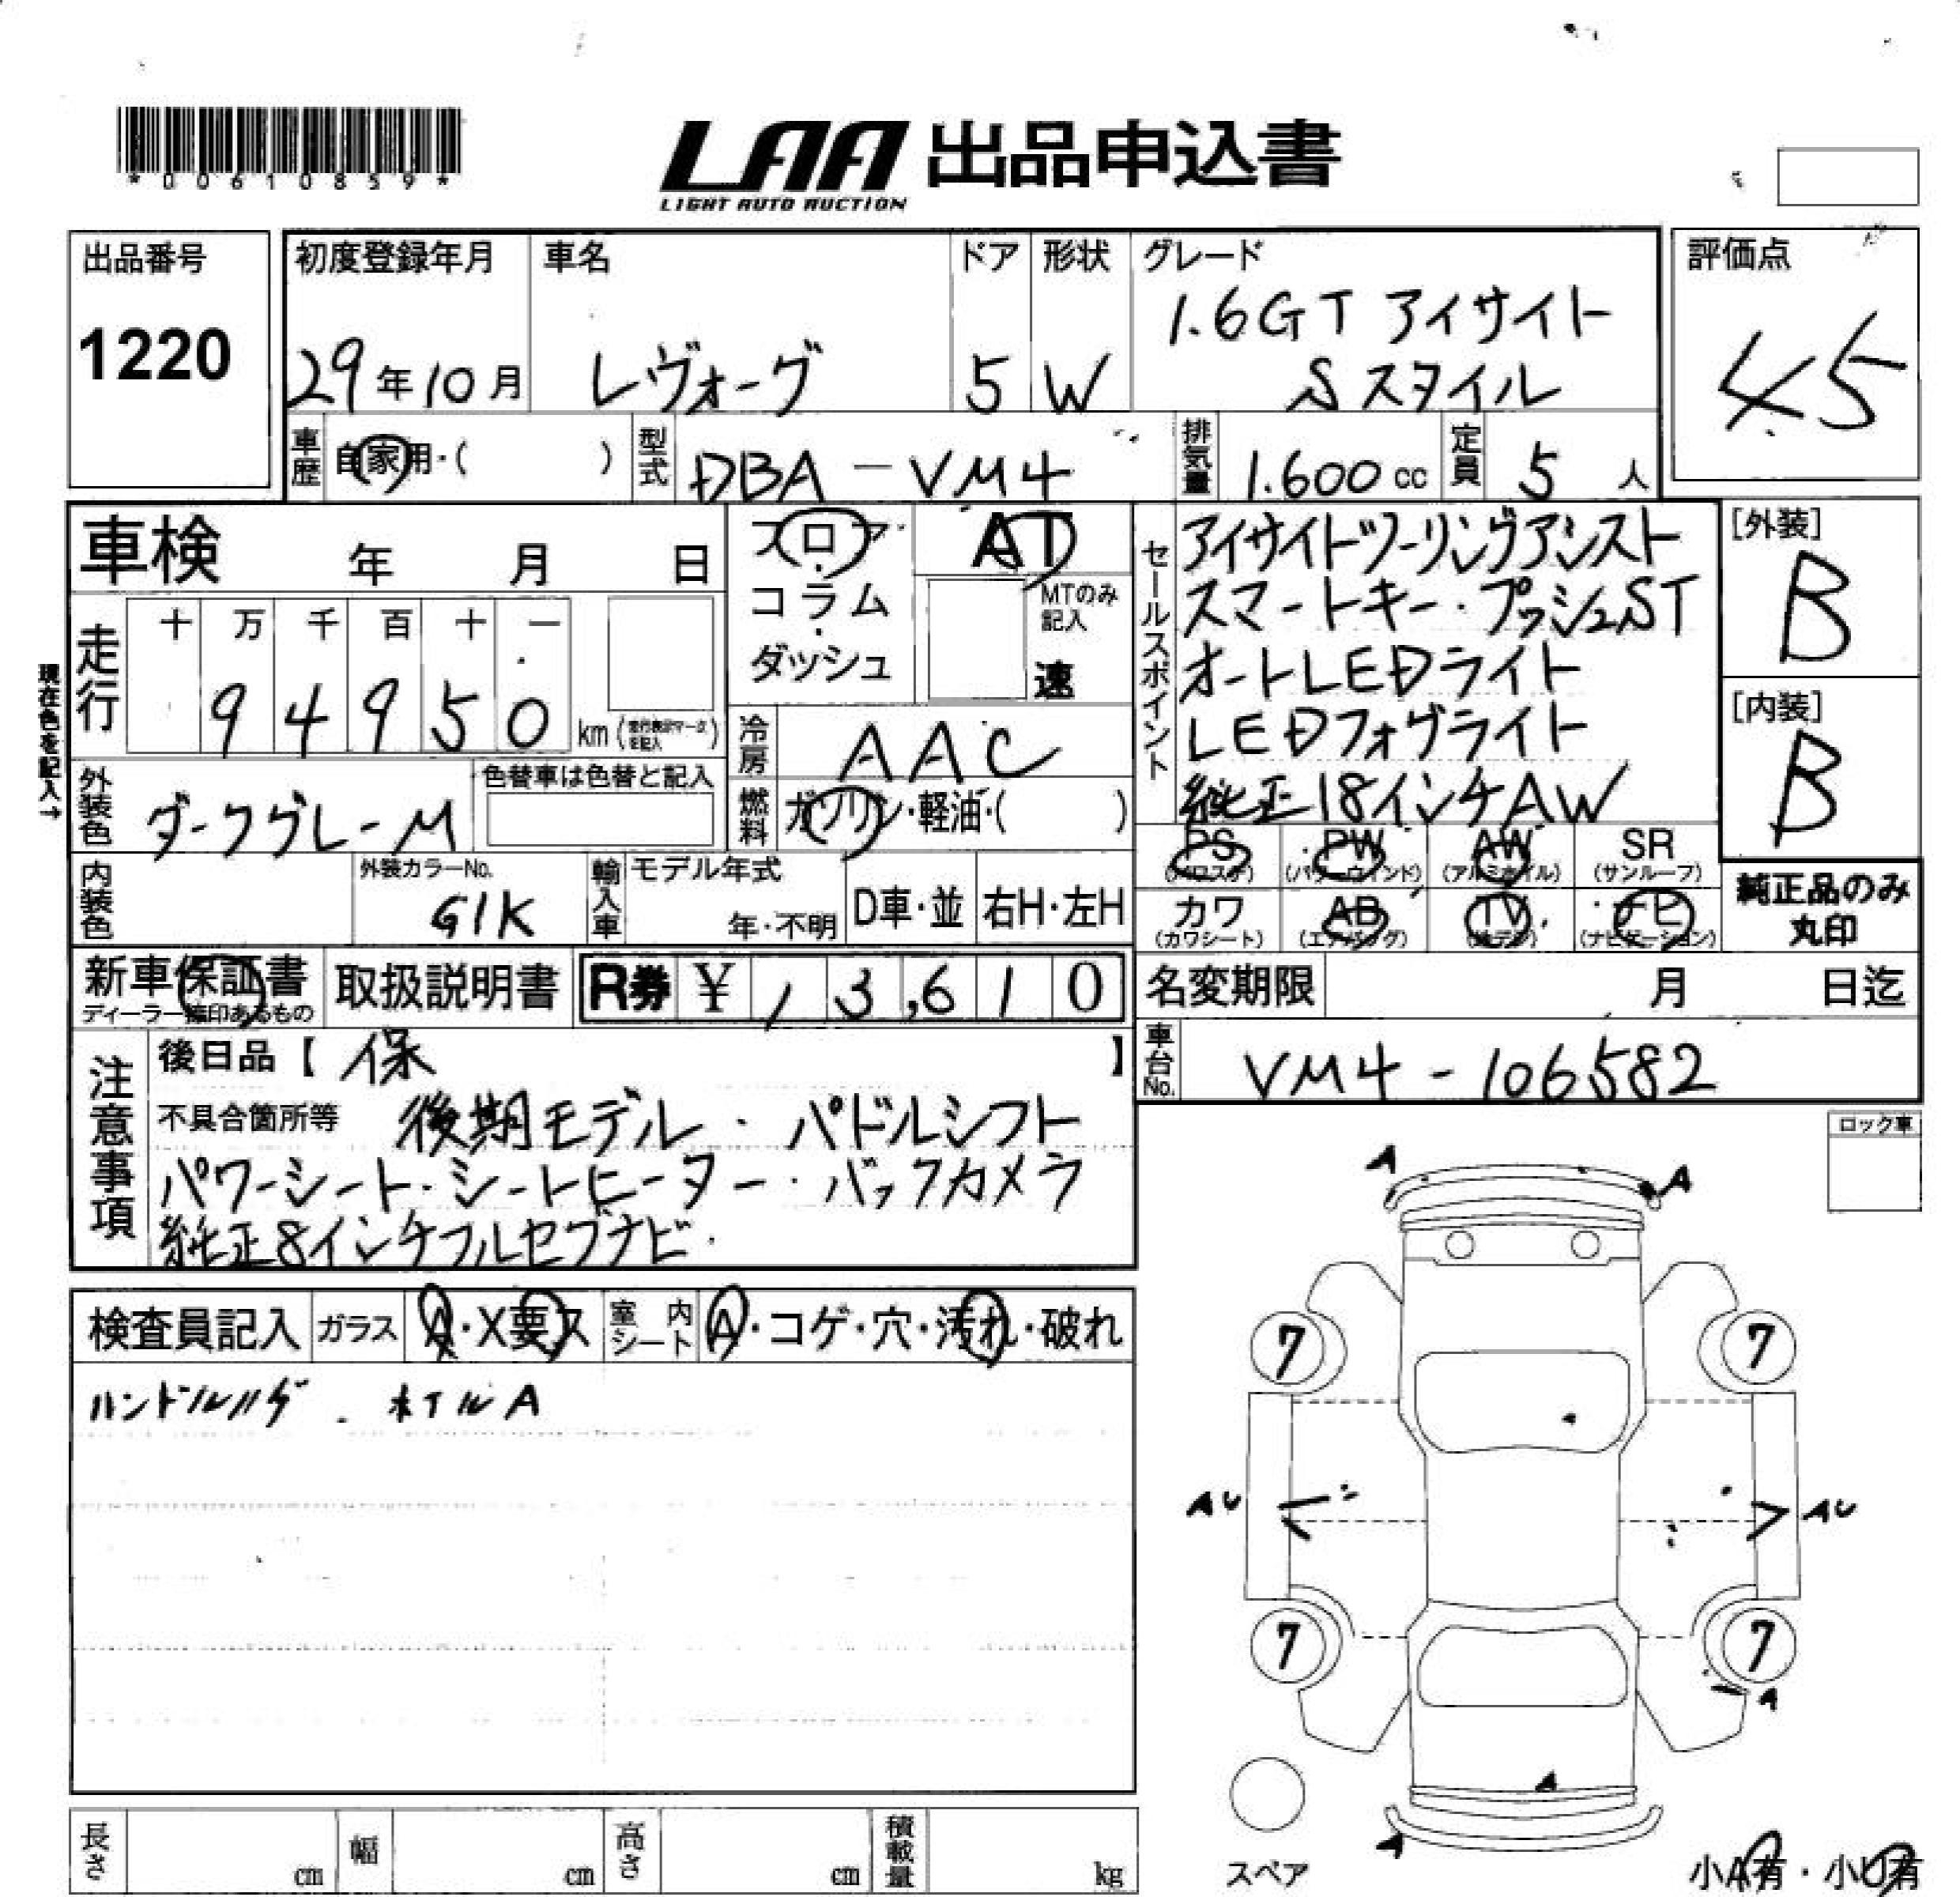 *00610859*
LAA 出品申込書
LIGHT AUTO AUCTION
出品番号
1220
初度登録年月
29年10月
車名
レヴォーグ
ドア
5
形状
W
グレード
1.6GT アイサイト
Sスタイル
評価点
4.5
車歴
自家用・( )
型式
DBA-VM4
排気量
1.600cc
定員
5人
車検 年 月 日
フロア・コラム・ダッシュ
AT
MTのみ記入
速
セールスポイント
アイサイドツーリングアシスト
スマートキー・プッシュST
オートLEDライト
LEDフォグライト
純正18インチAW
[外装]
B
[内装]
B
現在色を記入→
走行
十 万 千 百 十 一
9 4 9 5 0 km
冷房
AAC
外装色
ダークグレーM
色替車は色替と記入
燃料
ガソリン・軽油・( )
内装色
外装カラーNo.
G1K
輸入車
モデル年式
年・不明
D車・並
右H・左H
PS
(パワステ)
PW
(パワーウィンド)
AW
(アルミホイル)
SR
(サンルーフ)
カワ
(カワシート)
AB
(エアバッグ)
TV
ナビ
(ナビゲーション)
純正品のみ
丸印
新車保証書
ディーラー捺印あるもの
取扱説明書
R券 ¥ 13,610
名変期限 月 日迄
車台No.
VM4-106582
注意事項
後日品【 保 】
不具合箇所等 後期モデル・パドルシフト
パワーシート・シートヒーター・バックカメラ
純正8インチフルセグナビ.
ロック車
検査員記入
ガラス
A・X要ス
室内シート
A・コゲ・穴・汚れ・破れ
ハンドルハゲ . ホイルA
A A
7 7
AU AU
7 7
A
A
A
スペア
小A有・小U有
長さ cm
幅 cm
高さ cm
積載量 kg